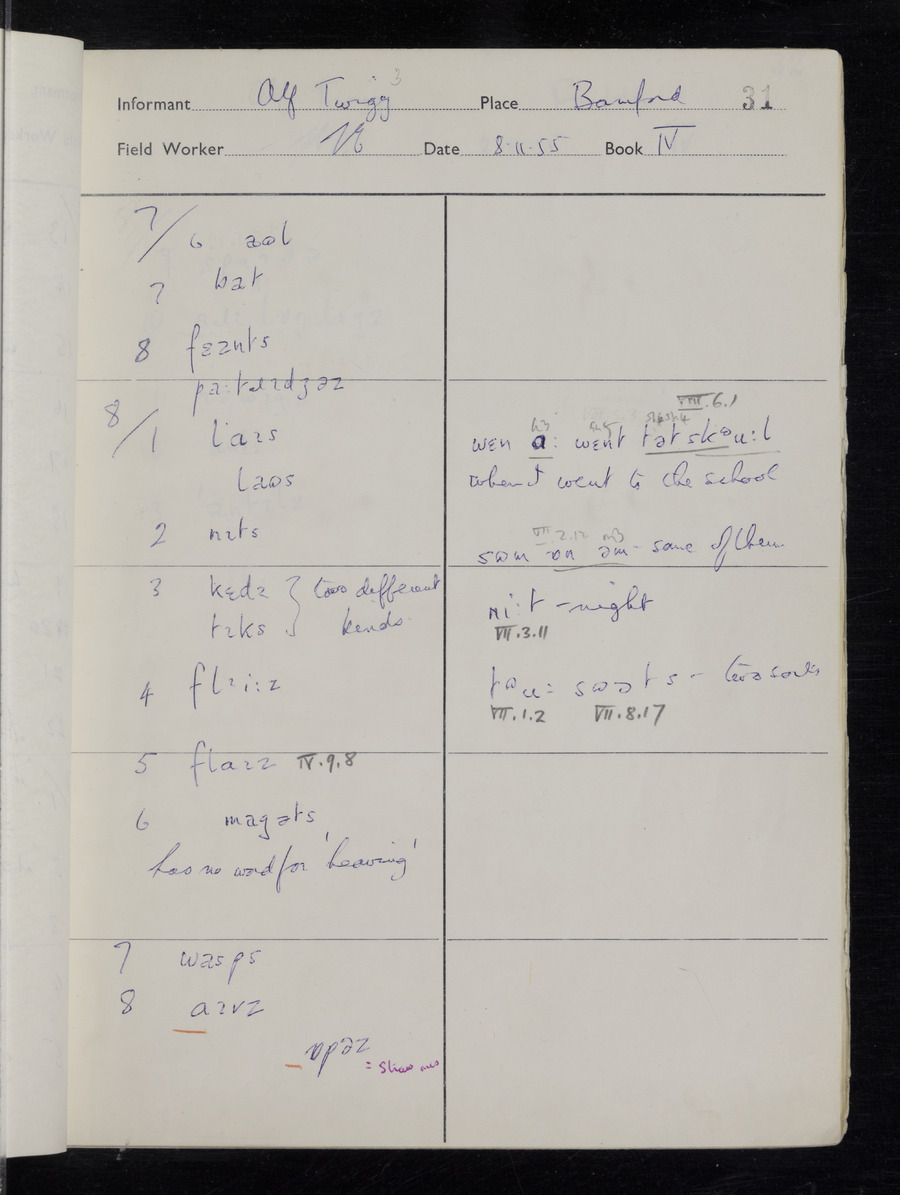 Informant Alf Twigg 3 Place Bamford 31
Field Worker Date 8.11.55 Book IV
7/6 aʊl
7 bat
8 fɛznts
paːtɹɪdʒəz
8/1 laɪs
laʊs
2 nɪts
3 kɛdz } two different
tɪks } kinds
4 flɪiːz
5 flaɪz IV.9.8
6 magəts
has no word for 'heaving'
7 wasps
8 aɪvz
= straw ones
VIII.6.1
wɛn aː wɛnt tət skᶷuːl
when I went to the school
VII.2.12
sʊm ɒn əm - some of them
niːt - night
VII.3.11
VII.1.2 VII.8.17